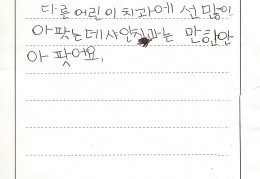 다른 어린이치과에선 많이
아팟는데 샤인치과는 만히안
아팟어요.